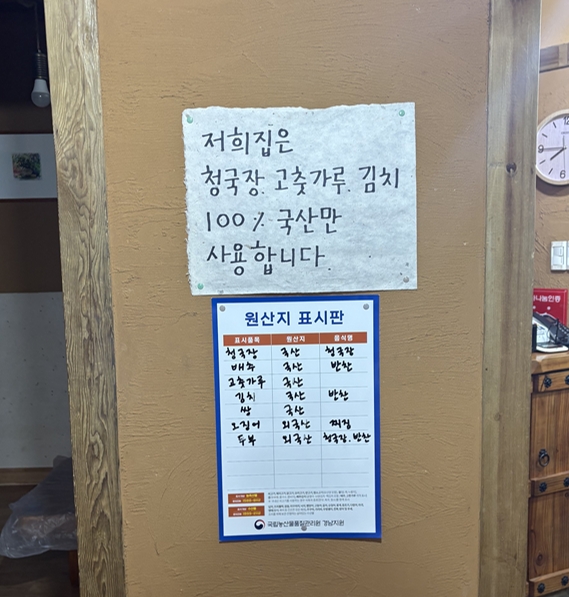 저희집은
청국장. 고춧가루. 김치
100% 국산만
사용합니다.
원산지 표시판
표시품목 원산지 음식명
청국장 국산 청국장
배추 국산 반찬
고춧가루 국산
김치 국산 반찬
쌀 국산
오징어 외국산 찌짐
두부 외국산 청국장, 반찬
국립농산물품질관리원 경남지원